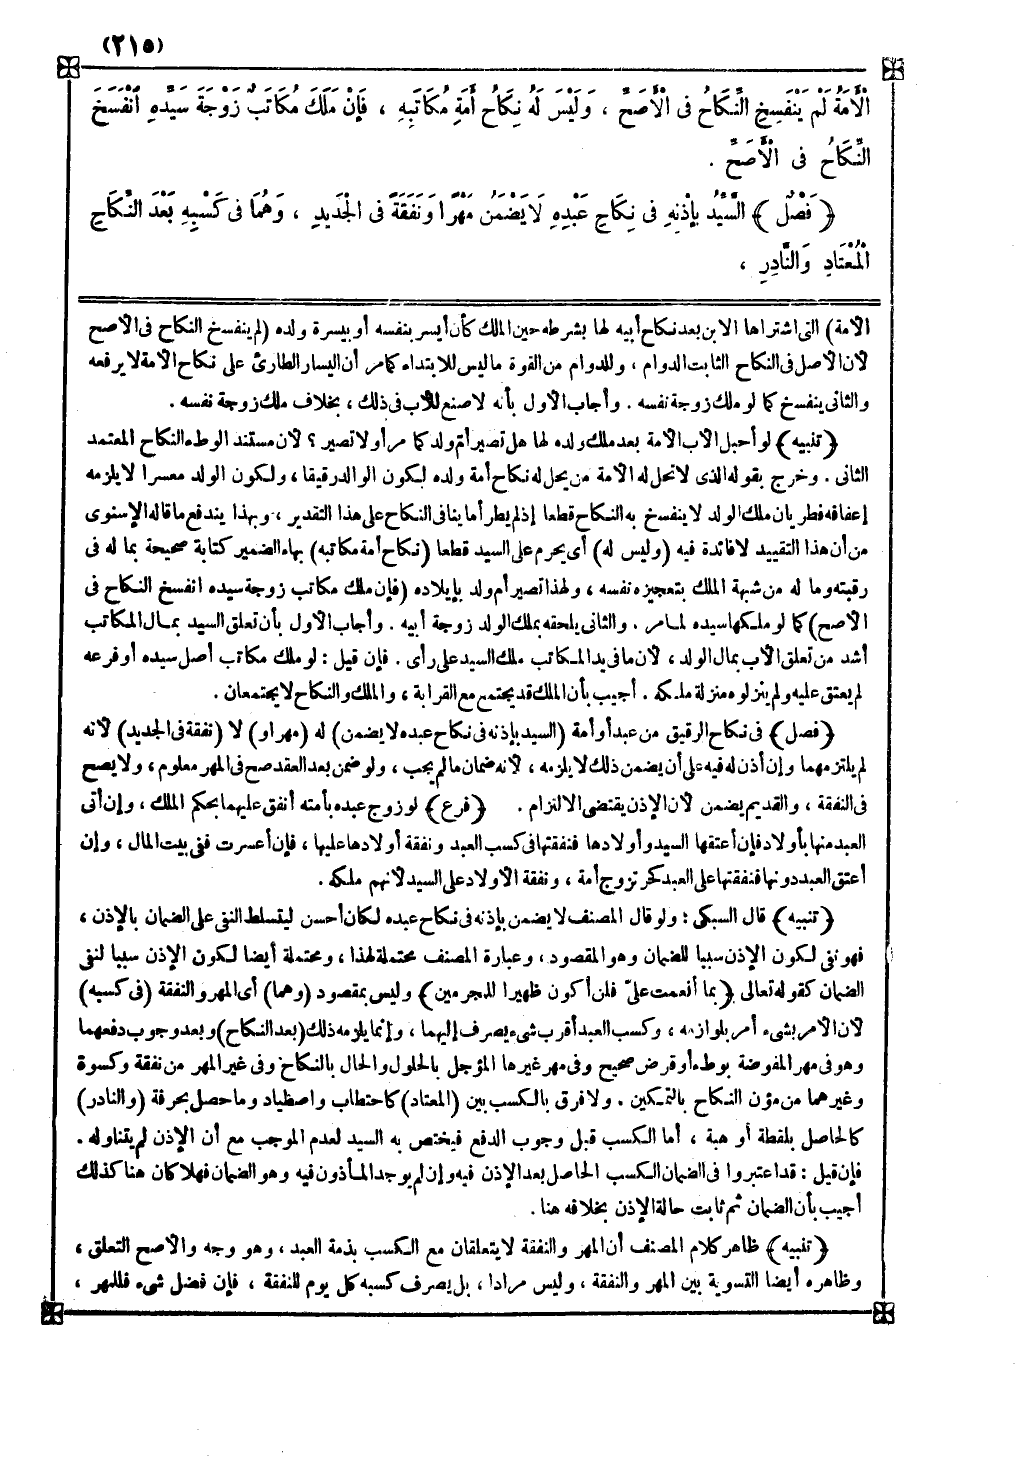 (٢١٥)
الْأَمَةُ لَمْ يَنْفَسِخِ النِّكَاحُ فى الْأَصَحِّ ، وَلَيْسَ لَهُ نِكَاحُ أَمَةِ مُكَاتَبِهِ ، فَإِنْ مَلَكَ مُكَاتَبٌ زَوْجَةَ سَيِّدِهِ انْفَسَخَ
النِّكَاحُ فى الْأَصَحِّ .
﴿ فَصْلٌ ﴾ السَّيِّدُ بِإِذْنِهِ فى نِكَاحِ عَبْدِهِ لَا يَضْمَنُ مَهْرًا وَنَفَقَةً فى الْجَدِيدِ ، وَهُمَا فى كَسْبِهِ بَعْدَ النِّكَاحِ
الْمُعْتَادِ وَالنَّادِرِ ،
الأمة) التى اشتراها الابن بعد نكاح أبيه لها بشرطه حين الملك كأن أيسر بنفسه أو بيسرة ولده (لم ينفسخ النكاح فى الأصح
لأن الأصل فى النكاح الثابت الدوام ، وللدوام من القوة ما ليس للابتداء كما مر أن اليسار الطارئ على نكاح الأمة لا يرفعه
والثانى ينفسخ كما لو ملك زوجة نفسه . وأجاب الأول بأنه لا صنع للأب فى ذلك ، بخلاف ملك زوجة نفسه .
﴿ تنبيه ﴾ لو أحبل الأب الأمة بعد ملك ولده لها هل تصير أم ولد كما مر أو لا تصير ؟ لأن مستند الوطء النكاح المعتمد
الثانى . وخرج بقوله الذى لا تحل له الأمة من يحل له نكاح أمة ولده لكون الوالد رقيقا ، ولكون الولد معسرا لا يلزمه
إعفافه فطريان ملك الولد لا ينفسخ به النكاح قطعا إذ لم يطرأ ما ينافى النكاح على هذا التقدير ، وبهذا يندفع ما قاله الإسنوى
من أن هذا التقييد لا فائدة فيه (وليس له) أى يحرم على السيد قطعا (نكاح أمة مكاتبه) بهاء الضمير كتابة صحيحة بما له فى
رقبته وما له من شبهة الملك بتعجيزه نفسه ، ولهذا تصير أم ولد بإيلاده (فإن ملك مكاتب زوجة سيده انفسخ النكاح فى
الأصح) كما لو ملكها سيده لما مر . والثانى يلحقه بملك الولد زوجة أبيه . وأجاب الأول بأن تعلق السيد بمال المكاتب
أشد من تعلق الأب بمال الولد ، لأن ما فى يد المكاتب ملك السيد على رأى . فإن قيل : لو ملك مكاتب أصل سيده أو فرعه
لم يعتق عليه ولم ينزلوه منزلة ملكه . أجيب بأن الملك قد يجتمع مع القرابة ، والملك والنكاح لا يجتمعان .
﴿ فصل ﴾ فى نكاح الرقيق من عبد أو أمة (السيد بإذنه فى نكاح عبده لا يضمن) له (مهرا و) لا (نفقة فى الجديد) لأنه
لم يلتزمهما وإن أذن له فيه على أن يضمن ذلك لا يلزمه ، لأنه ضمان ما لم يجب ، ولو ضمن بعد العقد صح فى المهر معلوم ، ولا يصح
فى النفقة ، والقديم يضمن لأن الإذن يقتضى الالتزام . ﴿ فرع ﴾ لو زوج عبده بأمته أنفق عليهما بحكم الملك ، وإن أتى
العبد منها بأولاد فإن أعتقها السيد وأولادها فنفقتها فى كسب العبد ونفقة أولادها عليها ، فإن أعسرت ففى بيت المال ، وإن
أعتق العبد دونها فنفقتها على العبد كحر تزوج أمة ، ونفقة الأولاد على السيد لأنهم ملكه .
﴿ تنبيه ﴾ قال السبكى : ولو قال المصنف لا يضمن بإذنه فى نكاح عبده لكان أحسن ليتسلط النفى على الضمان بالإذن ،
فهو نفى لكون الإذن سببا للضمان وهو المقصود ، وعبارة المصنف محتملة لهذا ، ومحتملة أيضا لكون الإذن سببا لنفى
الضمان كقوله تعالى ﴿ بما أنعمت علىّ فلن أكون ظهيرا للمجرمين ﴾ وليس بمقصود (وهما) أى المهر والنفقة (فى كسبه)
لأن الأمر بشىء أمر بلوازمه ، وكسب العبد أقرب شىء يصرف إليهما ، وإنما يلزمه ذلك (بعد النكاح) وبعد وجوب دفعهما
وهو فى مهر المفوضة بوطء أو فرض صحيح وفى مهر غيرها المؤجل بالحلول والحال بالنكاح وفى غير المهر من نفقة وكسوة
وغيرهما من مؤن النكاح بالتمكين . ولا فرق بالكسب بين (المعتاد) كاحتطاب واصطياد وما حصل بحرفة (والنادر)
كالحاصل بلقطة أو هبة ، أما الكسب قبل وجوب الدفع فيختص به السيد لعدم الموجب مع أن الإذن لم يتناوله .
فإن قيل : قد اعتبروا فى الضمان الكسب الحاصل بعد الإذن فيه وإن لم يوجد المأذون فيه وهو الضمان فهلا كان هنا كذلك
أجيب بأن الضمان ثم ثابت حالة الإذن بخلافه هنا .
﴿ تنبيه ﴾ ظاهر كلام المصنف أن المهر والنفقة لا يتعلقان مع الكسب بذمة العبد ، وهو وجه والأصح التعلق ،
وظاهره أيضا التسوية بين المهر والنفقة ، وليس مرادا ، بل يصرف كسبه كل يوم للنفقة ، فإن فضل شىء فللمهر ،